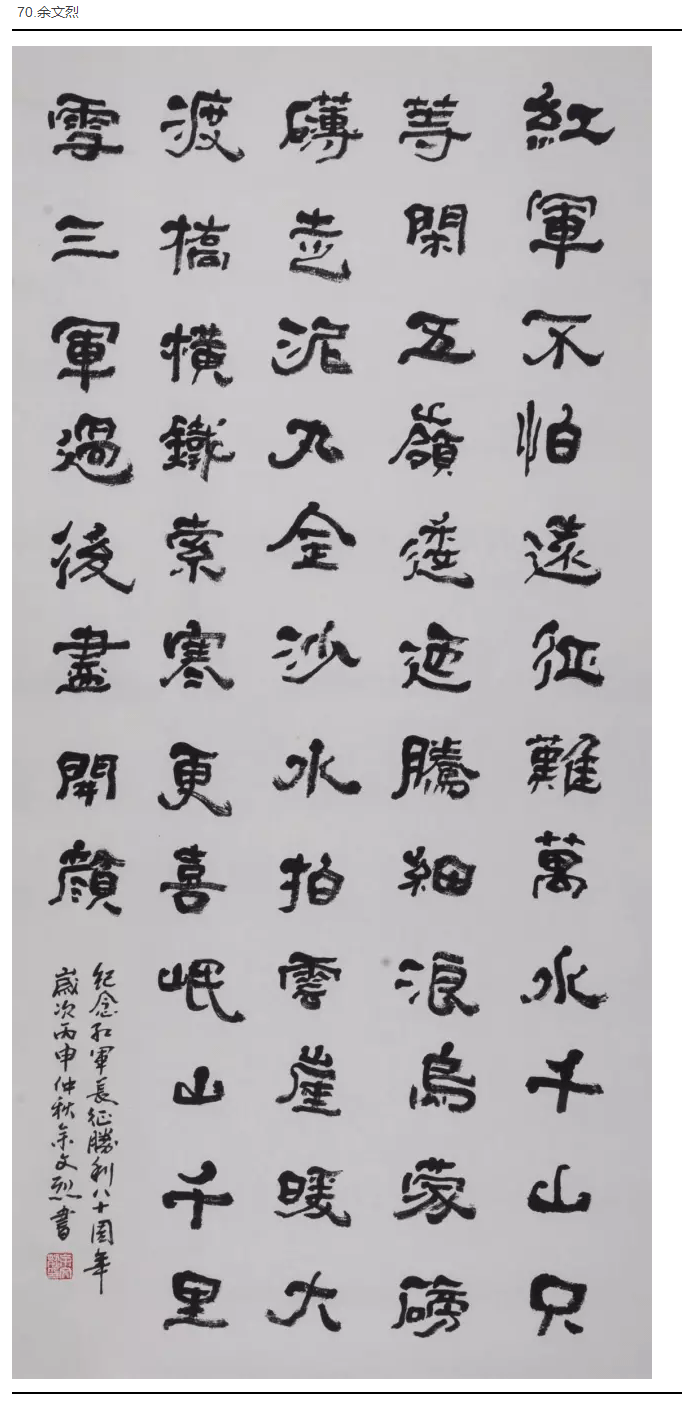 70.余文烈
紅軍不怕遠征難萬水千山只
等閑五嶺逶迤騰細浪烏蒙磅
礴走泥丸金沙水拍雲崖暖大
渡橋橫鐵索寒更喜岷山千里
雪三軍過後盡開顏
紀念紅軍長征勝利八十周年
歲次丙申仲秋余文烈書